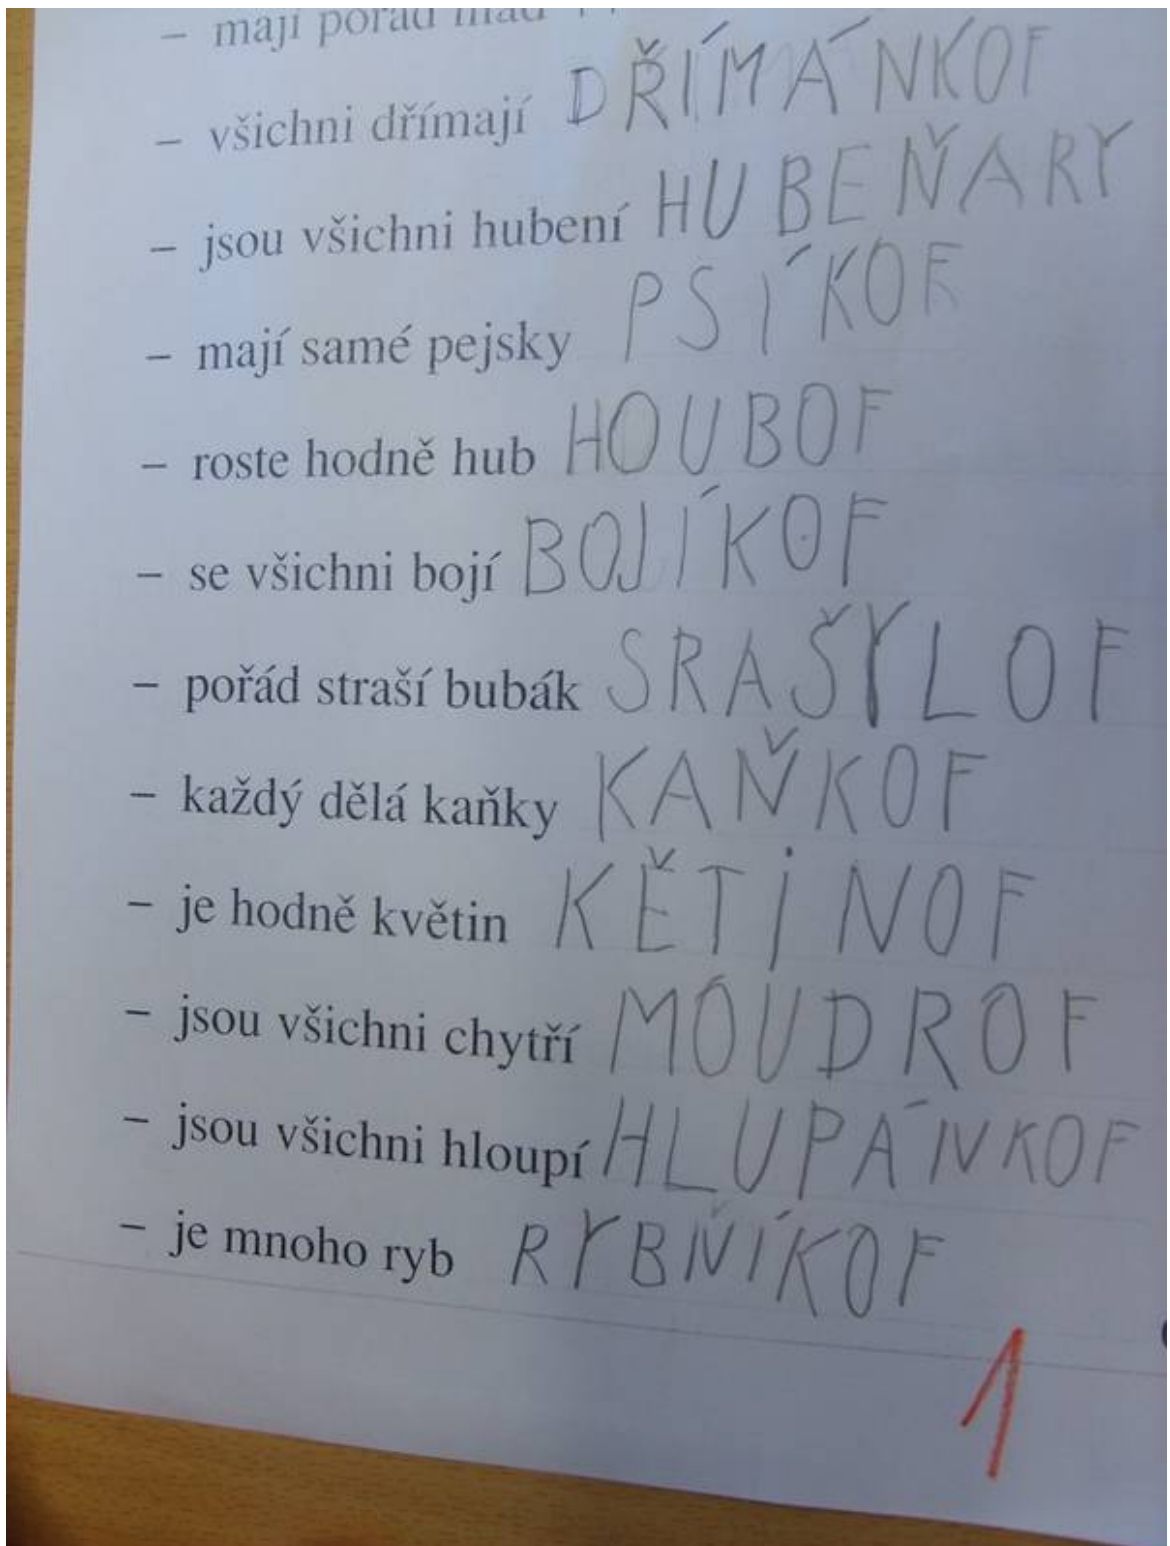 – mají pořád hlad
– všichni dřímají DŘÍMÁNKOF
– jsou všichni hubení HUBEŇARY
– mají samé pejsky PSÍKOF
– roste hodně hub HOUBOF
– se všichni bojí BOJÍKOF
– pořád straší bubák SRAŠYLOF
– každý dělá kaňky KAŇKOF
– je hodně květin KĚTiNOF
– jsou všichni chytří MOUDROF
– jsou všichni hloupí HLUPÁNKOF
– je mnoho ryb RYBŇÍKOF
1